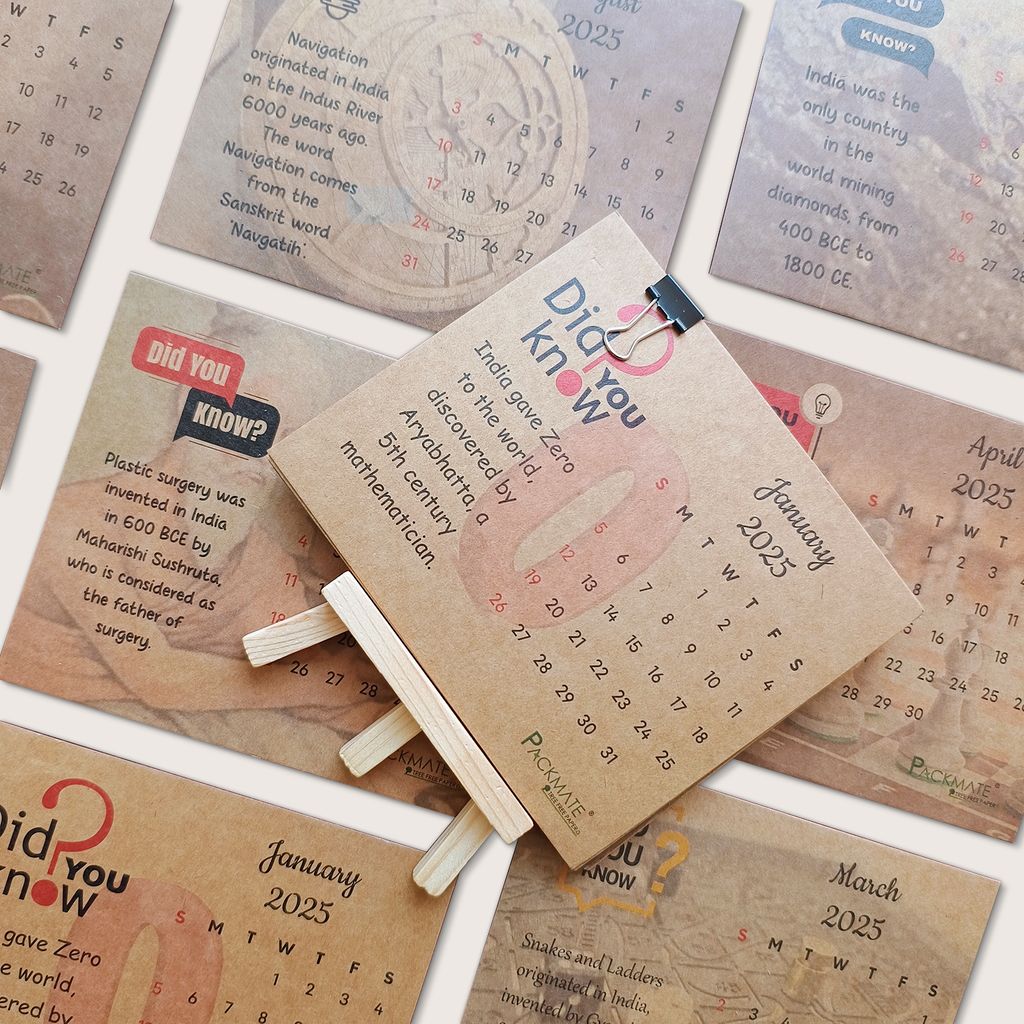 T F S
2 3 4 5
10 11 12
17 18 19
24 25 26
MATE
August
2025
Navigation
originated in India
on the Indus River
6000 years ago.
The word
Navigation comes
from the
Sanskrit word
'Navgatih'.
S M T W T F S
1 2
3 4 5 6 7 8 9
10 11 12 13 14 15 16
17 18 19 20 21
24 25 26 27
31
YOU
KNOW?
India was the
only country
in the
world mining
diamonds, from
400 BCE to
1800 CE.
S
5 6
12 13
19 20
26 27 28
Did You
Know?
Plastic surgery was
invented in India
in 600 BCE by
Maharishi Sushruta,
who is considered as
the father of
surgery.
4
11
26 27 28
PACKMATE
TREE FREE PAPER
Did
YOU
know
India gave Zero
to the world,
discovered by
Aryabhatta, a
5th century
mathematician.
0
January
2025
S M T W T F S
1 2 3 4
5 6 7 8 9 10 11
12 13 14 15 16 17 18
19 20 21 22 23 24 25
26 27 28 29 30 31
PACKMATE®
TREE FREE PAPER
YOU
April
2025
S M T W T
1 2 3
8 9 10
15 16 17 18
22 23 24 25 26
28 29 30
PACKMATE®
TREE FREE PAPER
Did
YOU
know
gave Zero
e world,
ered by
January
2025
S M T W T F S
1 2 3 4
5 6 7 8 9 10
YOU
KNOW
?
Snakes and Ladders
originated in India,
invented by
March
2025
S M T W T F S
1
2 3 4 5